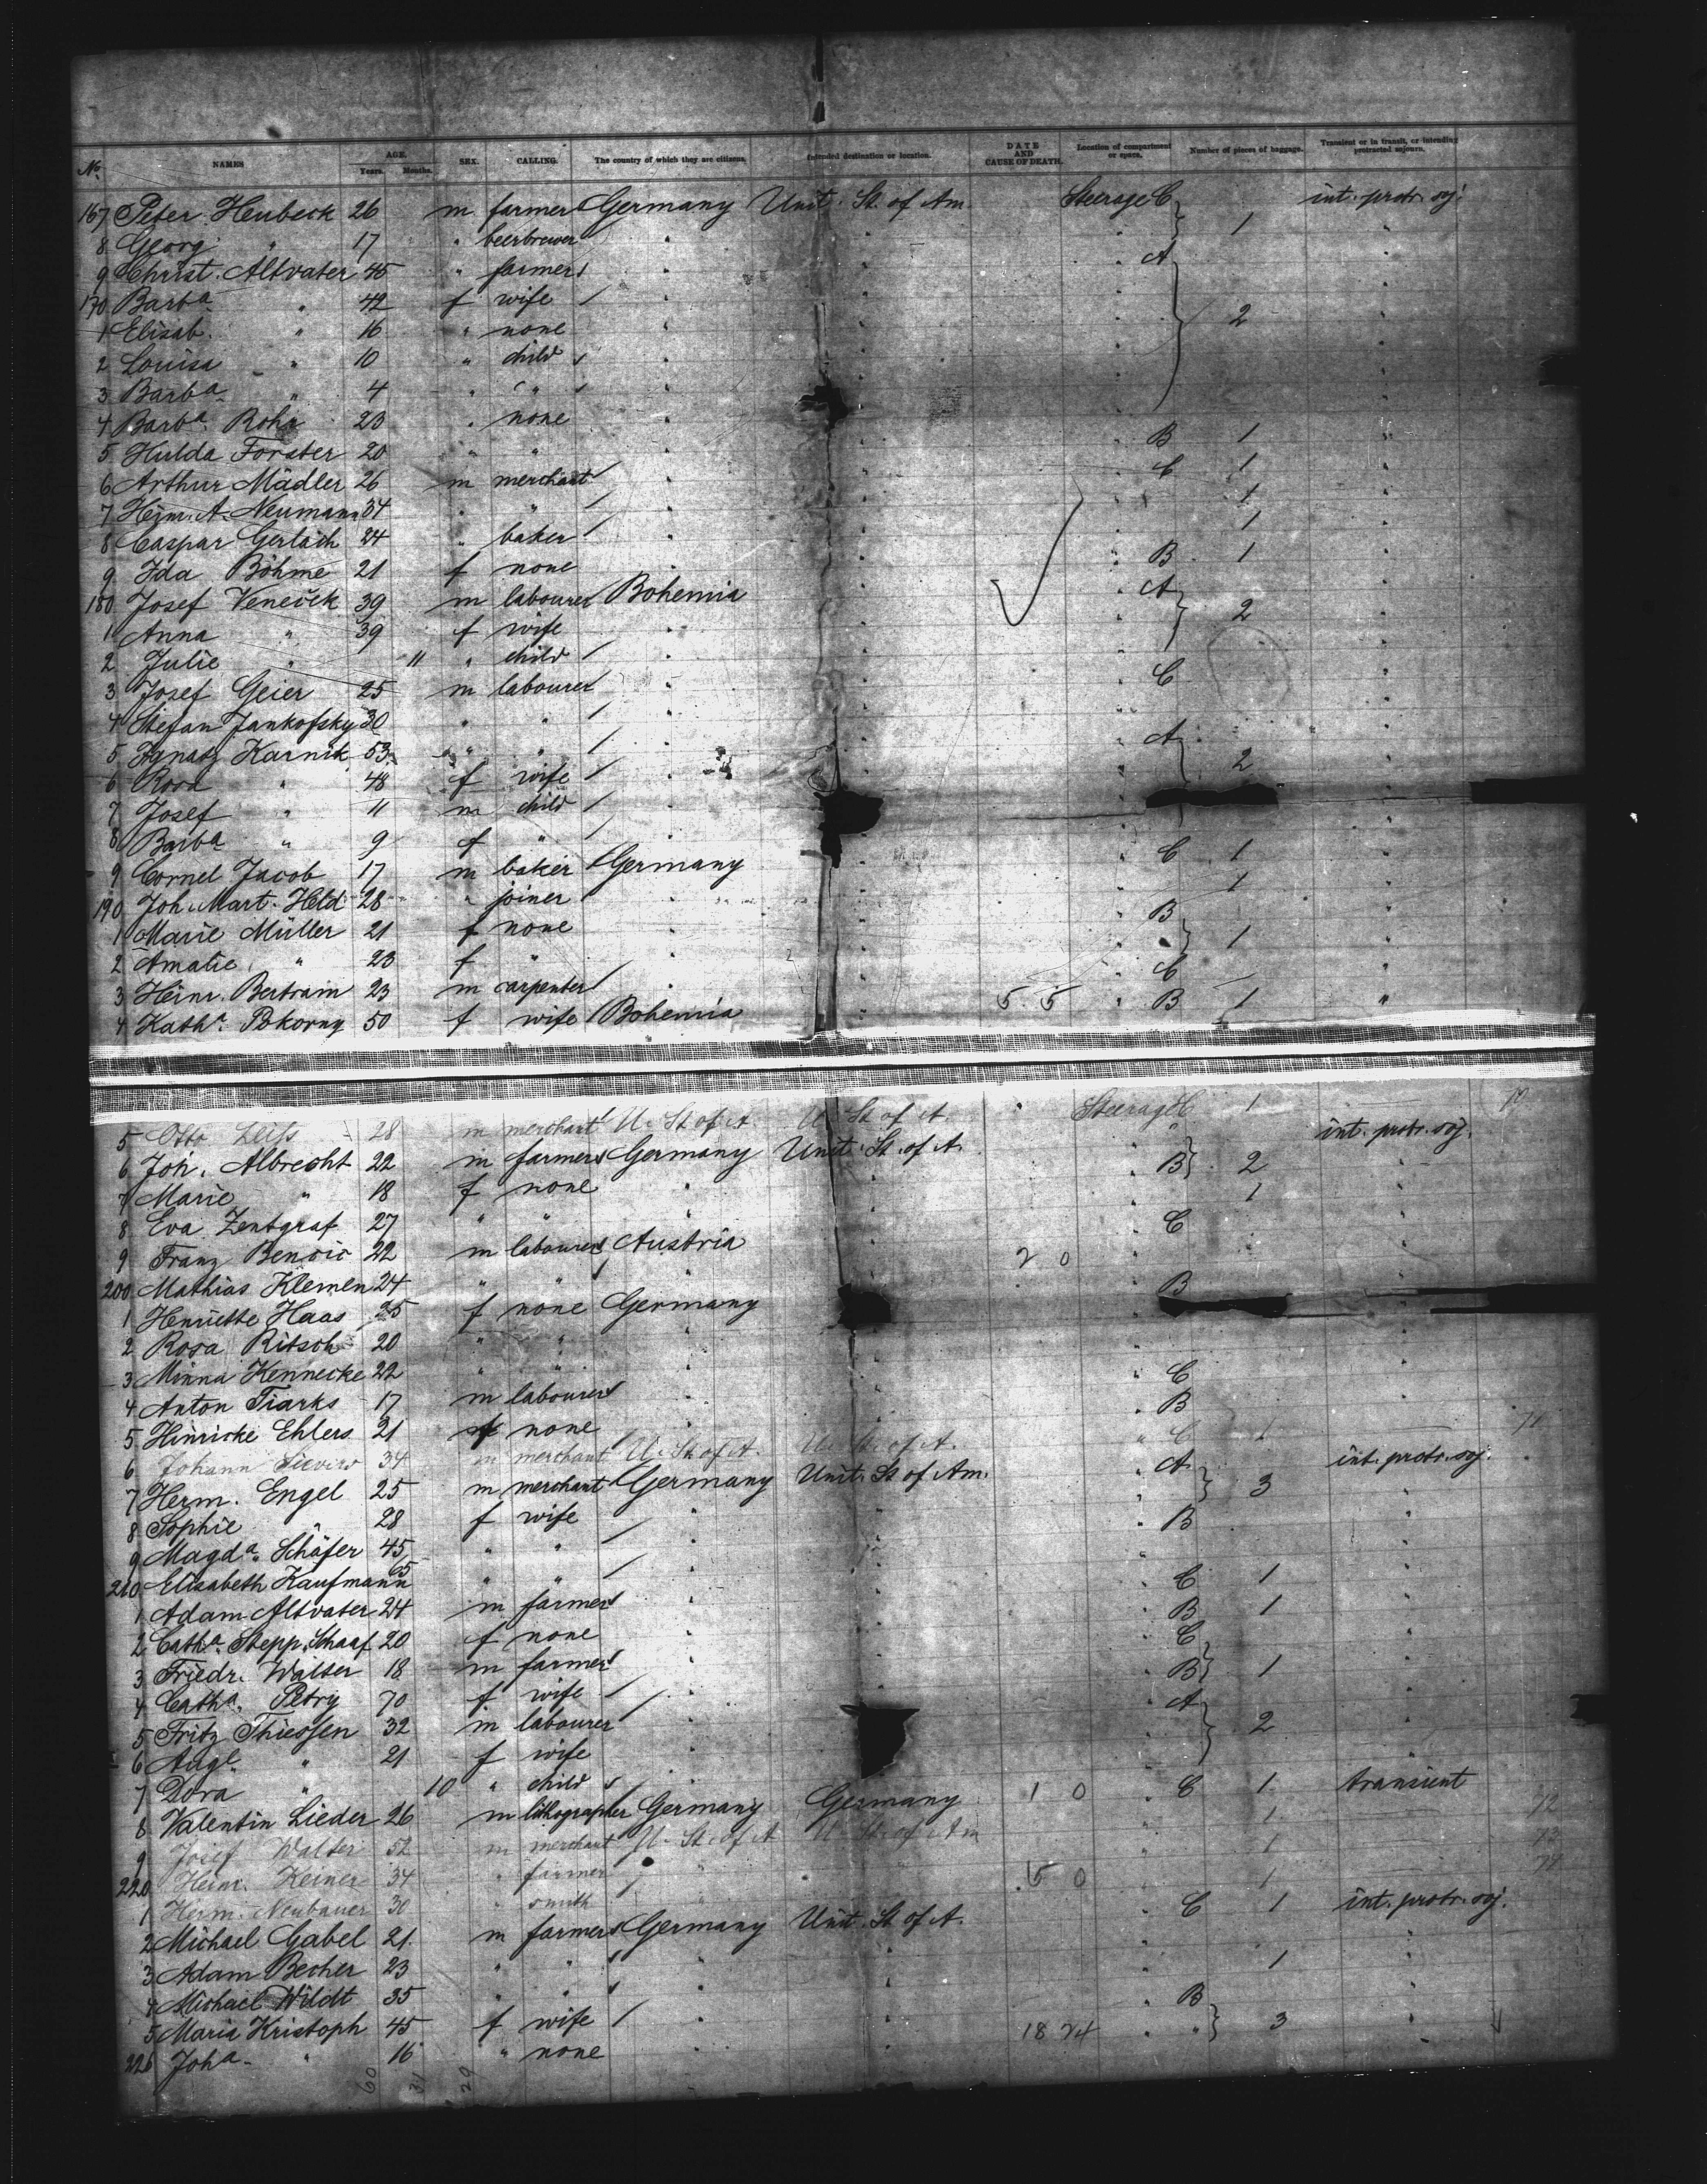 No. NAMES AGE. Years. Months. SEX. CALLING. The country of which they are citizens. Intended destination or location. DATE AND CAUSE OF DEATH. Location of compartment or space. Number of pieces of baggage. Transient or in transit, or intending protracted sojourn.
167 Peter Heubeck 26 m farmer Germany Unit. St. of Am. Steerage C 1 int. protr. soj.
8 Georg " 17 " beerbrewer "
9 Christ. Altvater 45 " farmer " A
170 Barba " 42 f wife " 2
1 Elisab. " 16 " none "
2 Louisa " 10 " child "
3 Barba " 4 " " "
4 Barba Rohr 23 " none " B 1
5 Hulda Forster 20 " " " C 1
6 Arthur Mädler 26 m merchant " 1
7 Herm. A. Neumann 34 " " " 1
8 Caspar Gerlach 24 " baker " B 1
9 Ida Böhme 21 f none " A
180 Josef Veneček 39 m labourer Bohemia " 2
1 Anna " 39 f wife "
2 Julie " 11 " child "
3 Josef Geier 25 m labourer " C
4 Stefan Jankofsky 30 " " "
5 Ignatz Karnik 53 " " " A
6 Rosa " 48 f wife " 2
7 Josef " 11 m child "
8 Barba " 9 f " "
9 Cornel Jacob 17 m baker Germany " C 1
190 Joh. Mart. Held 28 " joiner " 1
1 Marie Müller 21 f none " B
2 Amalie " 23 f " " 1
3 Heinr. Bertrain 23 m carpenter " C
4 Katha. Pokorny 50 f wife Bohemia " 5 5 B 1 "
5 Otto Leiss 28 m merchant U. St. of A. U. St. of A. Steerage C 1
6 Joh. Albrecht 22 m farmer Germany Unit. St. of A. B 2 int. protr. soj.
7 Marie " 18 f none " 1
8 Eva Zentgraf 27 " " " C
9 Franz Bencic 22 m labourer Austria " 2 0
200 Mathias Klemen 24 " " " B
1 Henriette Haas 25 f none Germany "
2 Rosa Ritsch 20 " " "
3 Minna Kennecke 22 " " " C
4 Anton Tiarks 17 m labourer " B
5 Hinricke Ehlers 21 f none " C 1 71
6 Johann 34 m merchant U. St. of A. U. St. of A. A int. protr. soj.
7 Herm. Engel 25 m merchant Germany Unit. St. of Am. 3
8 Sophie " 28 f wife " B
9 Magda. Schäfer 45 " " "
210 Elisabeth Kaufmann 65 " " " C 1
1 Adam Altvater 24 m farmer " B 1
2 Catha. Stepp. Schaaf 20 f none " C
3 Friedr. Walter 18 m farmer " B 1
4 Catha. Petry 70 f wife " A
5 Fritz Thiessen 32 m labourer " 2
6 Auge. " 21 f wife "
7 Dora " 10 " child " 1 0 C 1 transient
8 Valentin Lieder 26 m lithographer Germany Germany 1 72
9 Josef Walter 52 m merchant U. St. of A U. St. of Am 1 73
220 Heinr. Keiner 34 " farmer " 5 0 1 74
1 Herm. Neubauer 30 " smith " C 1 int. protr. soj.
2 Michael Gabel 21 m farmer Germany Unit. St. of A.
3 Adam Becher 23 " " " 1
4 Michael Wildt 35 " " " B
5 Maria Kristoph 45 f wife " 18 24 " 3
226 Joha. " 16 " none "
60 31 29